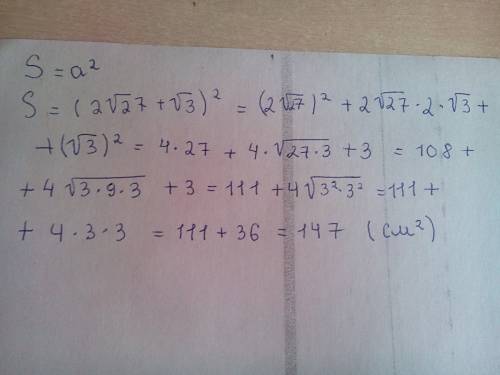 S = a²
S = (2√27 + √3)² = (2√27)² + 2√27 · 2 · √3 +
+ (√3)² = 4 · 27 + 4 · √27·3 + 3 = 108 +
+ 4 √3·9·3 + 3 = 111 + 4√3²·3² = 111 +
+ 4 · 3 · 3 = 111 + 36 = 147 (см²)